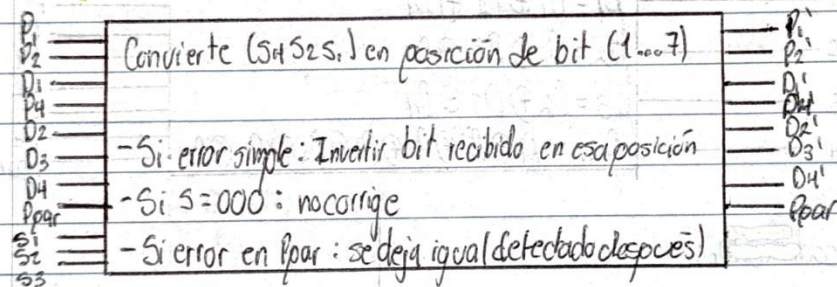 P1
P2
D1
P4
D2
D3
D4
Ppar
S1
S2
S3
Convierte (S4S2S1) en posición de bit (1...7)
- Si error simple: Invertir bit recibido en esa posición
- Si S=000: no corrige
- Si error en Ppar: se deja igual (detectado después)
P1'
P2'
D1'
P4'
D2'
D3'
D4'
Ppar